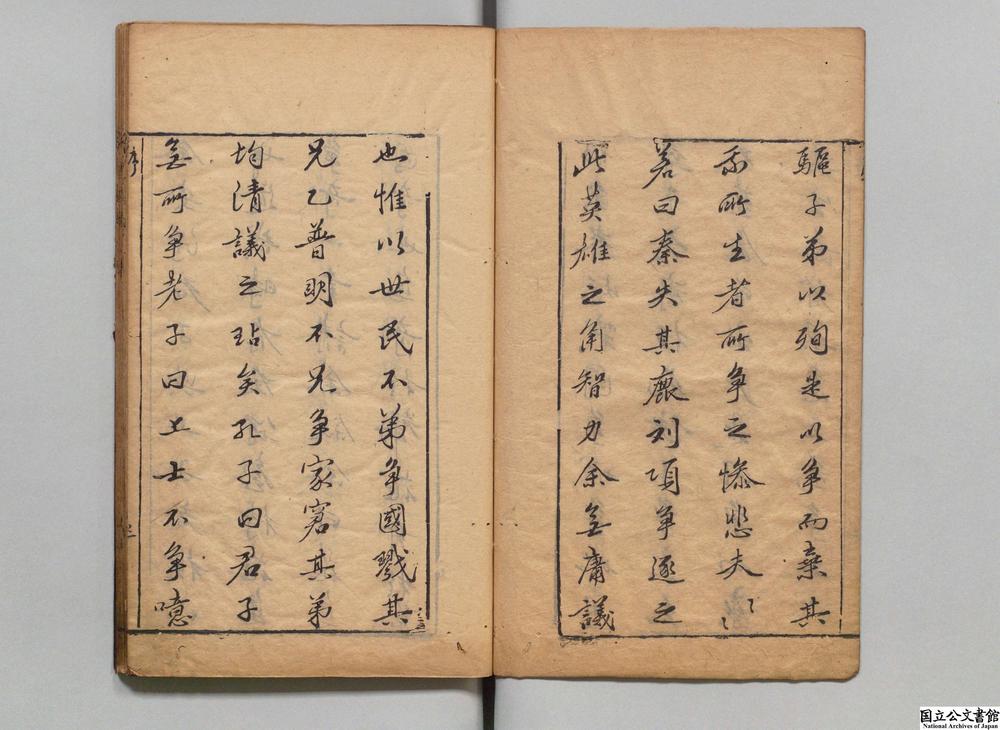 驅子弟以殉是以爭而棄其
所生者所爭之慘悲夫〻〻
若曰秦失其鹿刘項爭逐之
此英雄之角智力余無庸議
也惟以世民不弟爭國戮其
兄乙普明不兄爭家窘其弟
均清議之玷矣孔子曰君子
無所爭老子曰上士不爭噫
序
三
国立公文書館
National Archives of Japan